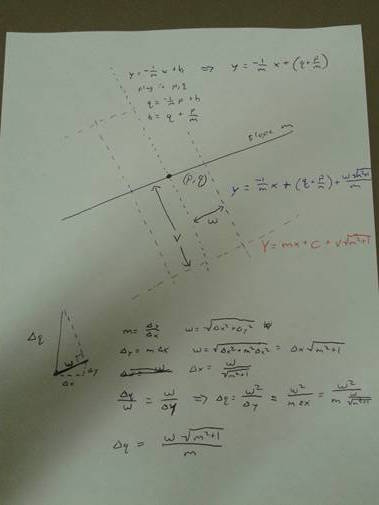 y = -1/m x + b ⇒ y = -1/m x + (q + p/m)
plug in p,q
q = -1/m p + b
b = q + p/m
slope m
(p,q)
y = -1/m x + (q + p/m) + w√m²+1/m
w
V
y = mx + C + v√m²+1
Δq
w
Δy
Δx
m = Δy/Δx w = √Δx²+Δy²
Δy = m Δx w = √Δx²+m²Δx² = Δx√m²+1
Δx = w/√m²+1
Δq/w = w/Δy ⇒ Δq = w²/Δy = w²/mΔx = w²/m w/√m²+1
Δq = w√m²+1/m